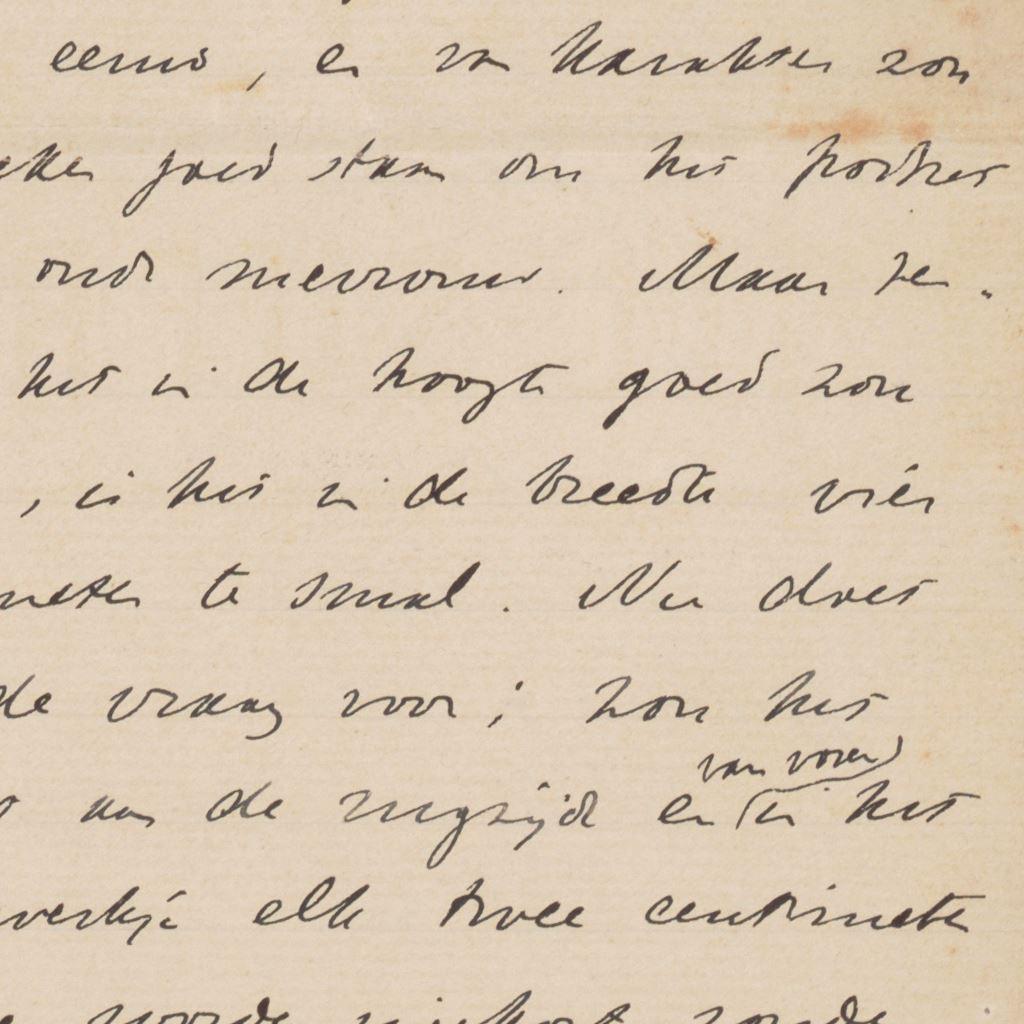 eens, en van karakter zou
goed staan om het portret
oude mevrouw. Maar ter-
het in de hoogte goed zou
, is het in de breedte vier
meter te smal. Nu doet
de vraag voor; zou het
aan de rugzijde en (van voren) in het
elk twee centimeter
worde zonde